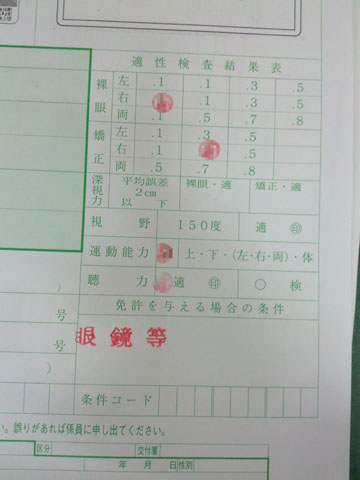 適性検査結果表
裸眼 左 .1 .1 .3 .5
右 .1 .3 .5
両 .1 .5 .7 .8
矯正 左 .1 .3 .5
右 .1 .5
両 .5 .7 .8
深視力 平均誤差 2cm 以下 裸眼・適 矯正・適
視野 150度 適 印
運動能力 上・下・(左・右・両)・体
聴力 適 印 ○ 検
免許を与える場合の条件
)
号
号 眼鏡等
)
条件コード
い。誤りがあれば係員に申し出てください。
区分 交付署
年 月 日 性別